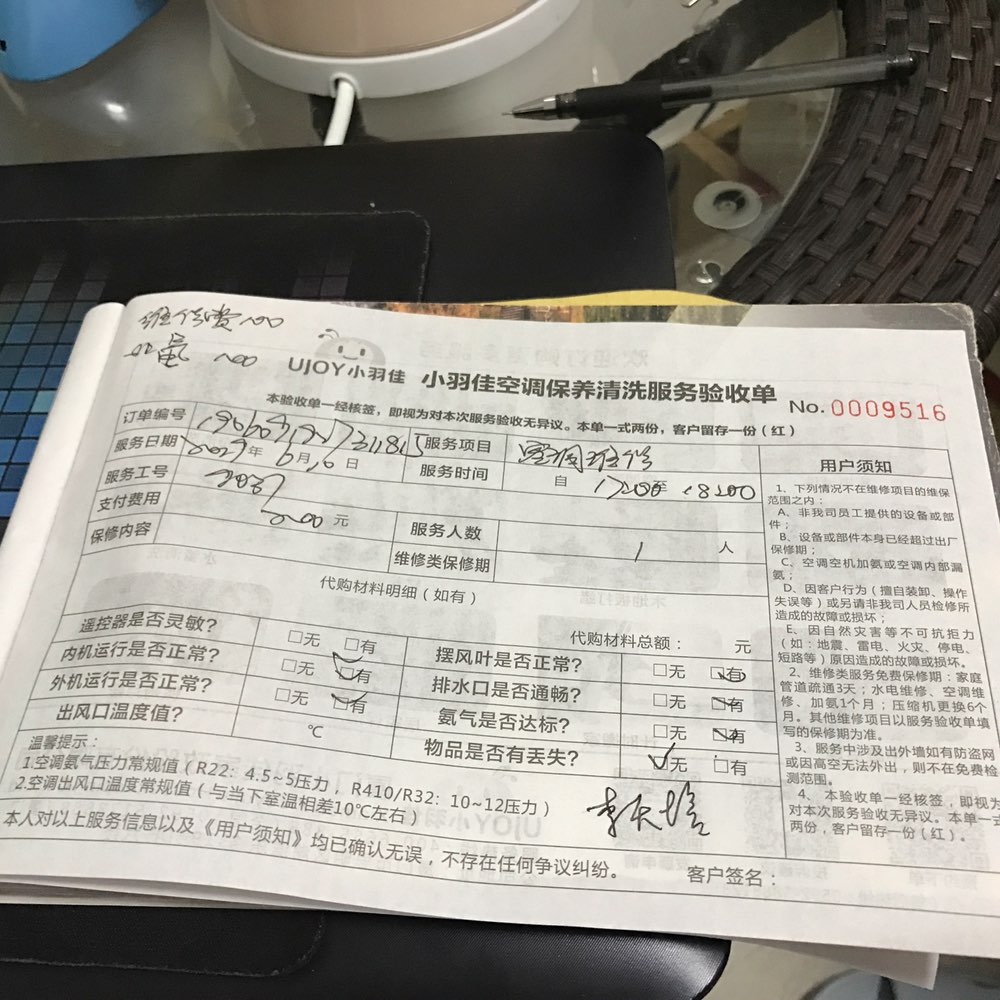 维修费
UJOY小羽佳 小羽佳空调保养清洗服务验收单 No. 0009516
本验收单一经核签，即视为对本次服务验收无异议。本单一式两份，客户留存一份（红）
订单编号 服务项目 空调维修
服务日期 年 6月 日 服务时间 自 至 18:00
服务工号
支付费用 元 服务人数 1 人
保修内容 维修类保修期
代购材料明细（如有）
代购材料总额： 元
遥控器是否灵敏？ □无 □有 摆风叶是否正常？ □无 □有
内机运行是否正常？ □无 □有 排水口是否通畅？ □无 □有
外机运行是否正常？ □无 □有 氨气是否达标？ □无 □有
出风口温度值？ ℃ 物品是否有丢失？ □无 □有
温馨提示：
1.空调氨气压力常规值（R22：4.5~5压力，R410/R32：10~12压力）
2.空调出风口温度常规值（与当下室温相差10℃左右）
本人对以上服务信息以及《用户须知》均已确认无误，不存在任何争议纠纷。 客户签名：
用户须知
1、下列情况不在维修项目的维保
范围之内：
A、非我司员工提供的设备或部
件；
B、设备或部件本身已经超过出厂
保修期；
C、空调空机加氨或空调内部漏
氨；
D、因客户行为（擅自装卸、操作
失误等）或另请非我司人员检修所
造成的故障或损坏；
E、因自然灾害等不可抗拒力
（如：地震、雷电、火灾、停电、
短路等）原因造成的故障或损坏。
2、维修类服务免费保修期：家庭
管道疏通3天；水电维修、空调维
修、加氨1个月；压缩机更换6个
月。其他维修项目以服务验收单填
写的保修期为准。
3、服务中涉及出外墙如有防盗网
或因高空无法外出，则不在免费检
测范围。
4、本验收单一经核签，即视为
对本次服务验收无异议。本单一式
两份，客户留存一份（红）。